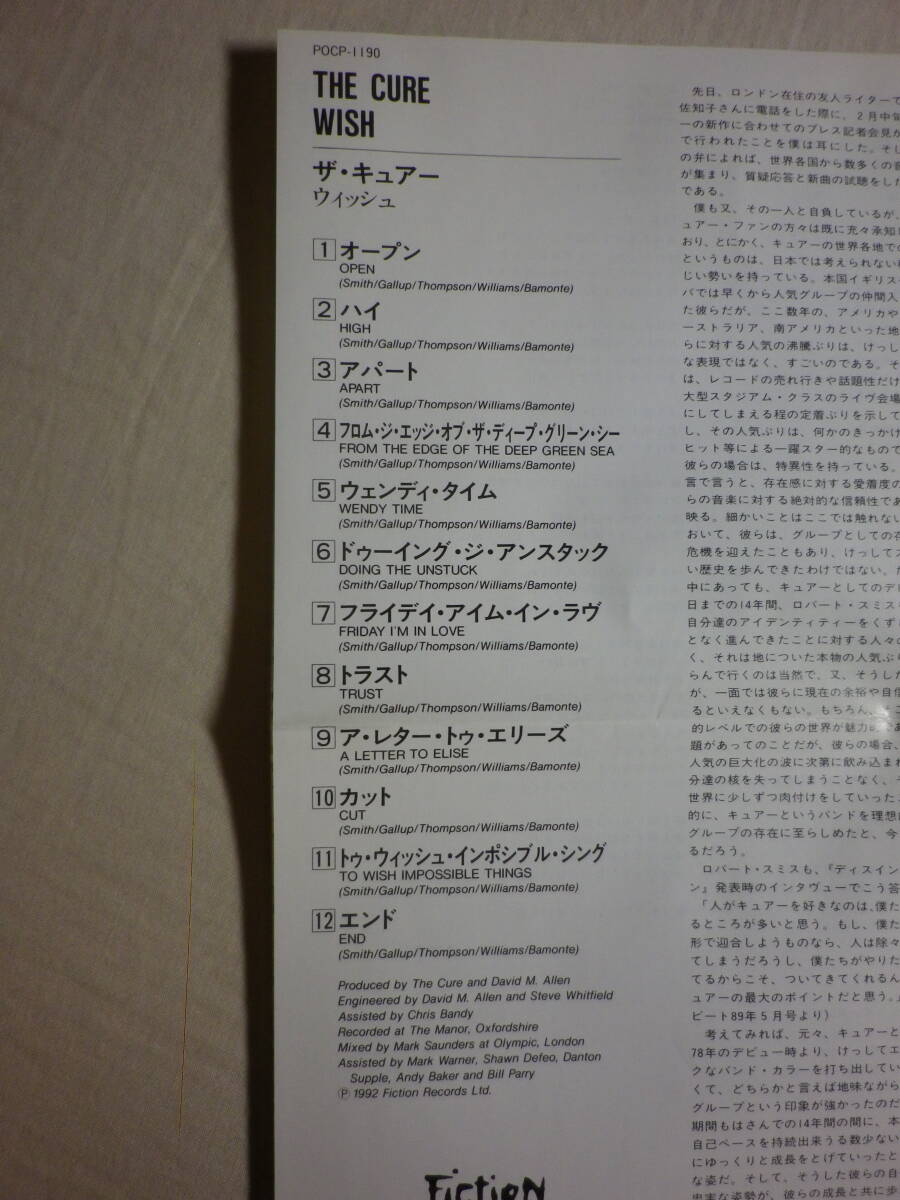 POCP-1190
THE CURE
WISH
ザ・キュアー
ウィッシュ
1 オープン
OPEN
(Smith/Gallup/Thompson/Williams/Bamonte)
2 ハイ
HIGH
(Smith/Gallup/Thompson/Williams/Bamonte)
3 アパート
APART
(Smith/Gallup/Thompson/Williams/Bamonte)
4 フロム・ジ・エッジ・オブ・ザ・ディープ・グリーン・シー
FROM THE EDGE OF THE DEEP GREEN SEA
(Smith/Gallup/Thompson/Williams/Bamonte)
5 ウェンディ・タイム
WENDY TIME
(Smith/Gallup/Thompson/Williams/Bamonte)
6 ドゥーイング・ジ・アンスタック
DOING THE UNSTUCK
(Smith/Gallup/Thompson/Williams/Bamonte)
7 フライデイ・アイム・イン・ラヴ
FRIDAY I'M IN LOVE
(Smith/Gallup/Thompson/Williams/Bamonte)
8 トラスト
TRUST
(Smith/Gallup/Thompson/Williams/Bamonte)
9 ア・レター・トゥ・エリーズ
A LETTER TO ELISE
(Smith/Gallup/Thompson/Williams/Bamonte)
10 カット
CUT
(Smith/Gallup/Thompson/Williams/Bamonte)
11 トゥ・ウィッシュ・インポシブル・シング
TO WISH IMPOSSIBLE THINGS
(Smith/Gallup/Thompson/Williams/Bamonte)
12 エンド
END
(Smith/Gallup/Thompson/Williams/Bamonte)
Produced by The Cure and David M. Allen
Engineered by David M. Allen and Steve Whitfield
Assisted by Chris Bandy
Recorded at The Manor, Oxfordshire
Mixed by Mark Saunders at Olympic, London
Assisted by Mark Warner, Shawn Defeo, Danton
Supple, Andy Baker and Bill Parry
Ⓟ 1992 Fiction Records Ltd.
Fiction
先日、ロンドン在住の友人ライターで
佐知子さんに電話をした際に、2月中旬
ーの新作に合わせてのプレス記者会見が
で行われたことを僕は耳にした。そし
の弁によれば、世界各国から数多くの音
が集まり、質疑応答と新曲の試聴をした
である。
僕も又、その一人と自負しているが、
ュアー・ファンの方々は既に充々承知し
おり、とにかく、キュアーの世界各地での
というものは、日本では考えられない
じい勢いを持っている。本国イギリス
バでは早くから人気グループの仲間入
た彼らだが、ここ数年の、アメリカや
ーストラリア、南アメリカといった地
らに対する人気の沸騰ぶりは、けっし
な表現ではなく、すごいのである。そ
は、レコードの売れ行きや話題性だけ
大型スタジアム・クラスのライヴ会場
にしてしまえる程の定着ぶりを示して
し、その人気ぶりは、何かのきっかけ
ヒット等による一躍スター的なもので
彼らの場合は、特異性を持っている。
言で言うと、存在感に対する愛着度の
らの音楽に対する絶対的な信頼性であ
映る。細かいことはここでは触れない
おいて、彼らは、グループとしての存
危機を迎えたこともあり、けっしてス
い歴史を歩んできたわけではない。だ
中にあっても、キュアーとしてのデビ
日までの14年間、ロバート・スミスは
自分達のアイデンティティーをくずす
となく進んできたことに対する人々の
く、それは地についた本物の人気ぶり
らんで行くのは当然で、又、そうした
が、一面では彼らに現在の余裕や自信
るといえなくもない。もちろん、
的レベルでの彼らの世界が魅力的であ
題があってのことだが、彼らの場合、
人気の巨大化の波に次第に飲み込まれ
分達の核を失ってしまうことなく、そ
世界に少しずつ肉付けをしていったこ
的に、キュアーというバンドを理想
グループの存在に至らしめたと、今
るだろう。
ロバート・スミスも、『ディスイン
ン』発表時のインタヴューでこう答
「人がキュアーを好きなのは、僕た
るところが多いと思う。もし、僕た
形で迎合しようものなら、人は除々
てしまうだろうし、僕たちがやりた
てるからこそ、ついてきてくれるん
ュアーの最大のポイントだと思う。」
ビート89年5月号より)
考えてみれば、元々、キュアーと
78年のデビュー時より、けっしてエ
クなバンド・カラーを打ち出してい
くて、どちらかと言えば地味ながら
グループという印象が強かったのだ
期間もはさんでの14年間の間に、本
自己ペースを持続出来うる数少ない
にゆっくりと成長をとげていったと
な姿だ。そして、そうした彼らの自
忠実な姿勢が、彼らの成長と共に歩